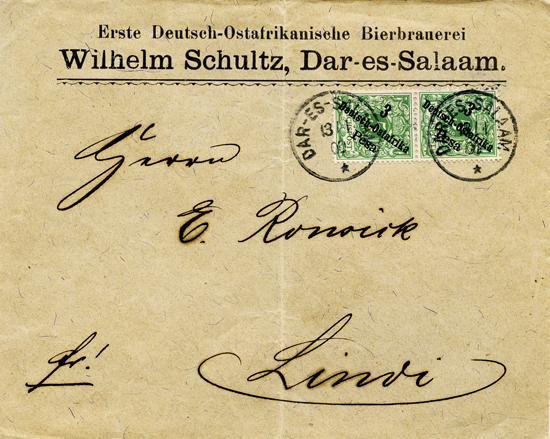 Erste Deutsch-Ostafrikanische Bierbrauerei
Wilhelm Schultz, Dar-es-Salaam.
3
Deutsch-Ostafrika
Pesa
3
Deutsch-Ostafrika
Pesa
DAR-ES-
13
DAR-ES-SALAAM
Herrn
E. Ronsick
fr!
Lindi